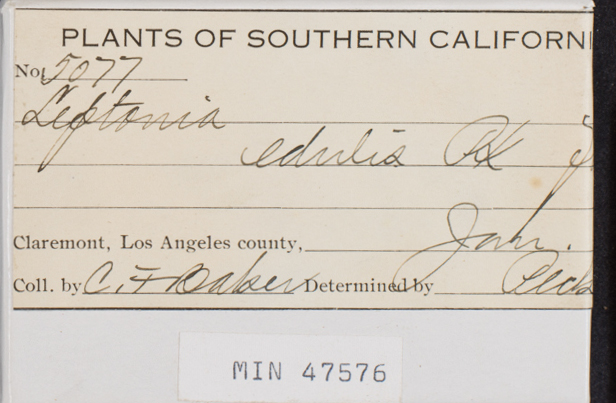 PLANTS OF SOUTHERN CALIFORNI
No. 5077
Leptonia
edulis Pk
Claremont, Los Angeles county, Jan.
Coll. by C. F. Baker Determined by Peck
MIN 47576